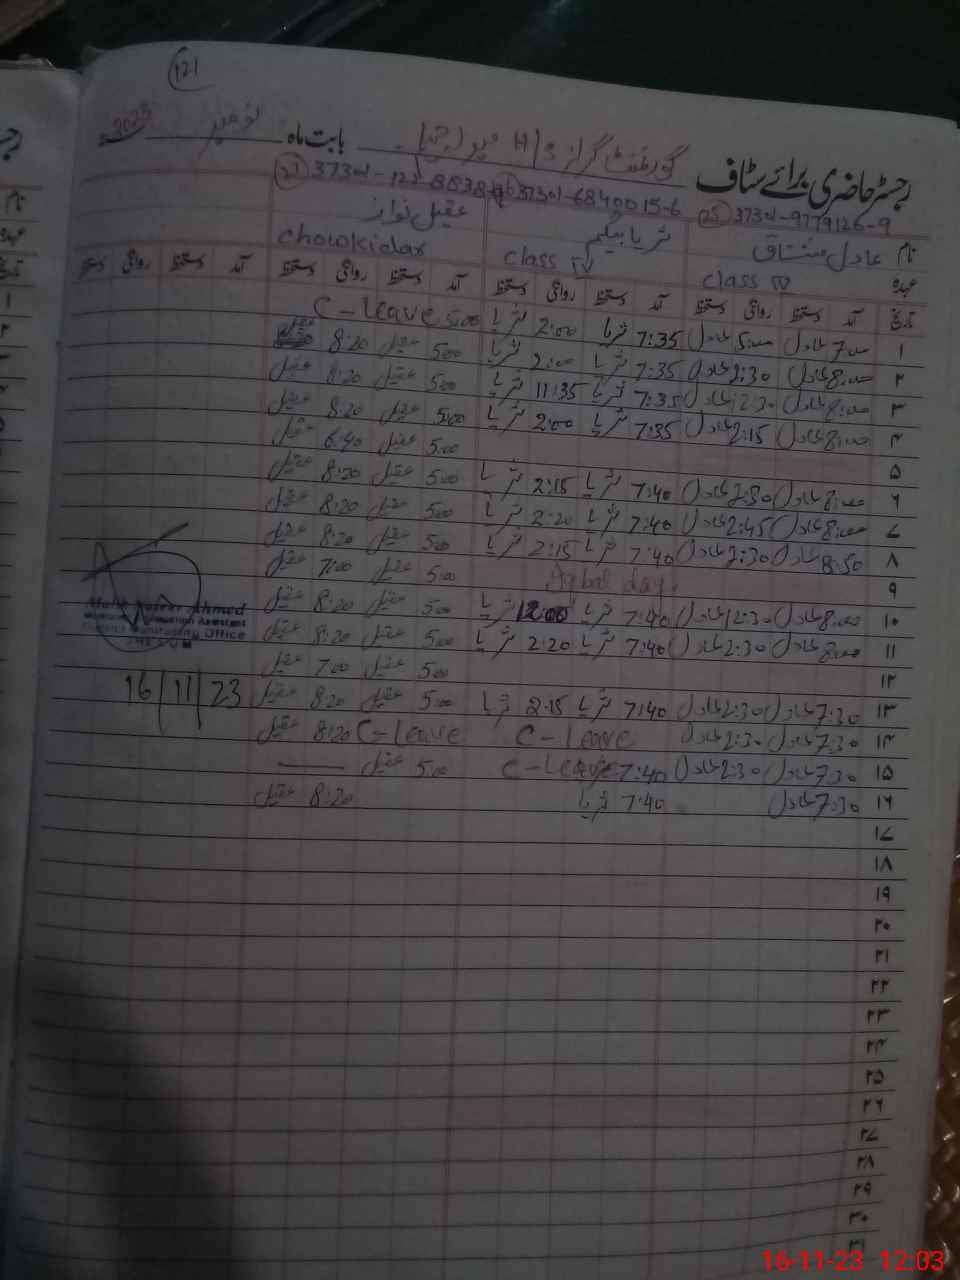 121
رجسٹر حاضری برائے سٹاف گورنمنٹ گرلز H/S بابت ماہ نومبر 2023
25 37301-9779126-9 26 37301-6840015-6 27 37301-
نام عادل مشتاق ثریا بیگم عقیل نواز
عہدہ class IV class IV chowkidar
تاریخ آمد دستخط روانگی دستخط آمد دستخط روانگی دستخط آمد دستخط روانگی دستخط آمد دستخط روانگی دستخط
۱ عادل عادل 7:35 ثریا 2:00 ثریا 5:00 C-leave
۲ 8:00 عادل 2:30 عادل 7:35 ثریا 2:00 ثریا 5:00 عقیل 8:20 عقیل
۳ 8:00 عادل 12:30 عادل 7:35 ثریا 11:35 ثریا 5:00 عقیل 8:20 عقیل
۴ 8:00 عادل 2:15 عادل 7:35 ثریا 2:00 ثریا 5:00 عقیل 8:20 عقیل
۵ 5:00 عقیل 6:40 عقیل
۶ 8:00 عادل 2:30 عادل 7:40 ثریا 2:15 ثریا 5:00 عقیل 8:20 عقیل
۷ 8:00 عادل 2:45 عادل 7:40 ثریا 2:20 ثریا 5:00 عقیل 8:20 عقیل
۸ 8:50 عادل 2:30 عادل 7:40 ثریا 2:15 ثریا 5:00 عقیل 8:20 عقیل
۹ Iqbal day. 5:00 عقیل 7:00 عقیل
۱۰ 8:00 عادل 12:30 عادل 7:40 ثریا 12:00 ثریا 5:00 عقیل 8:20 عقیل
۱۱ 8:00 عادل 2:30 عادل 7:40 ثریا 2:20 ثریا 5:00 عقیل 8:20 عقیل
۱۲ 5:00 عقیل 7:00 عقیل
۱۳ 7:30 عادل 2:30 عادل 7:40 ثریا 2:15 ثریا 5:00 عقیل 8:20 عقیل
۱۴ 7:30 عادل 2:30 عادل C-leave C-leave 8:20 عقیل
۱۵ 7:30 عادل 2:30 عادل 7:40 C-leave 5:00 عقیل —
۱۶ 7:30 عادل 7:40 ثریا 8:20 عقیل
۱۷
۱۸
۱۹
۲۰
۲۱
۲۲
۲۳
۲۴
۲۵
۲۶
۲۷
۲۸
۲۹
۳۰
۳۱
Ahmed
Monitoring & Evaluation Assistant
District Monitoring Office
JHELUM
16/11/23
16-11-23 12:03